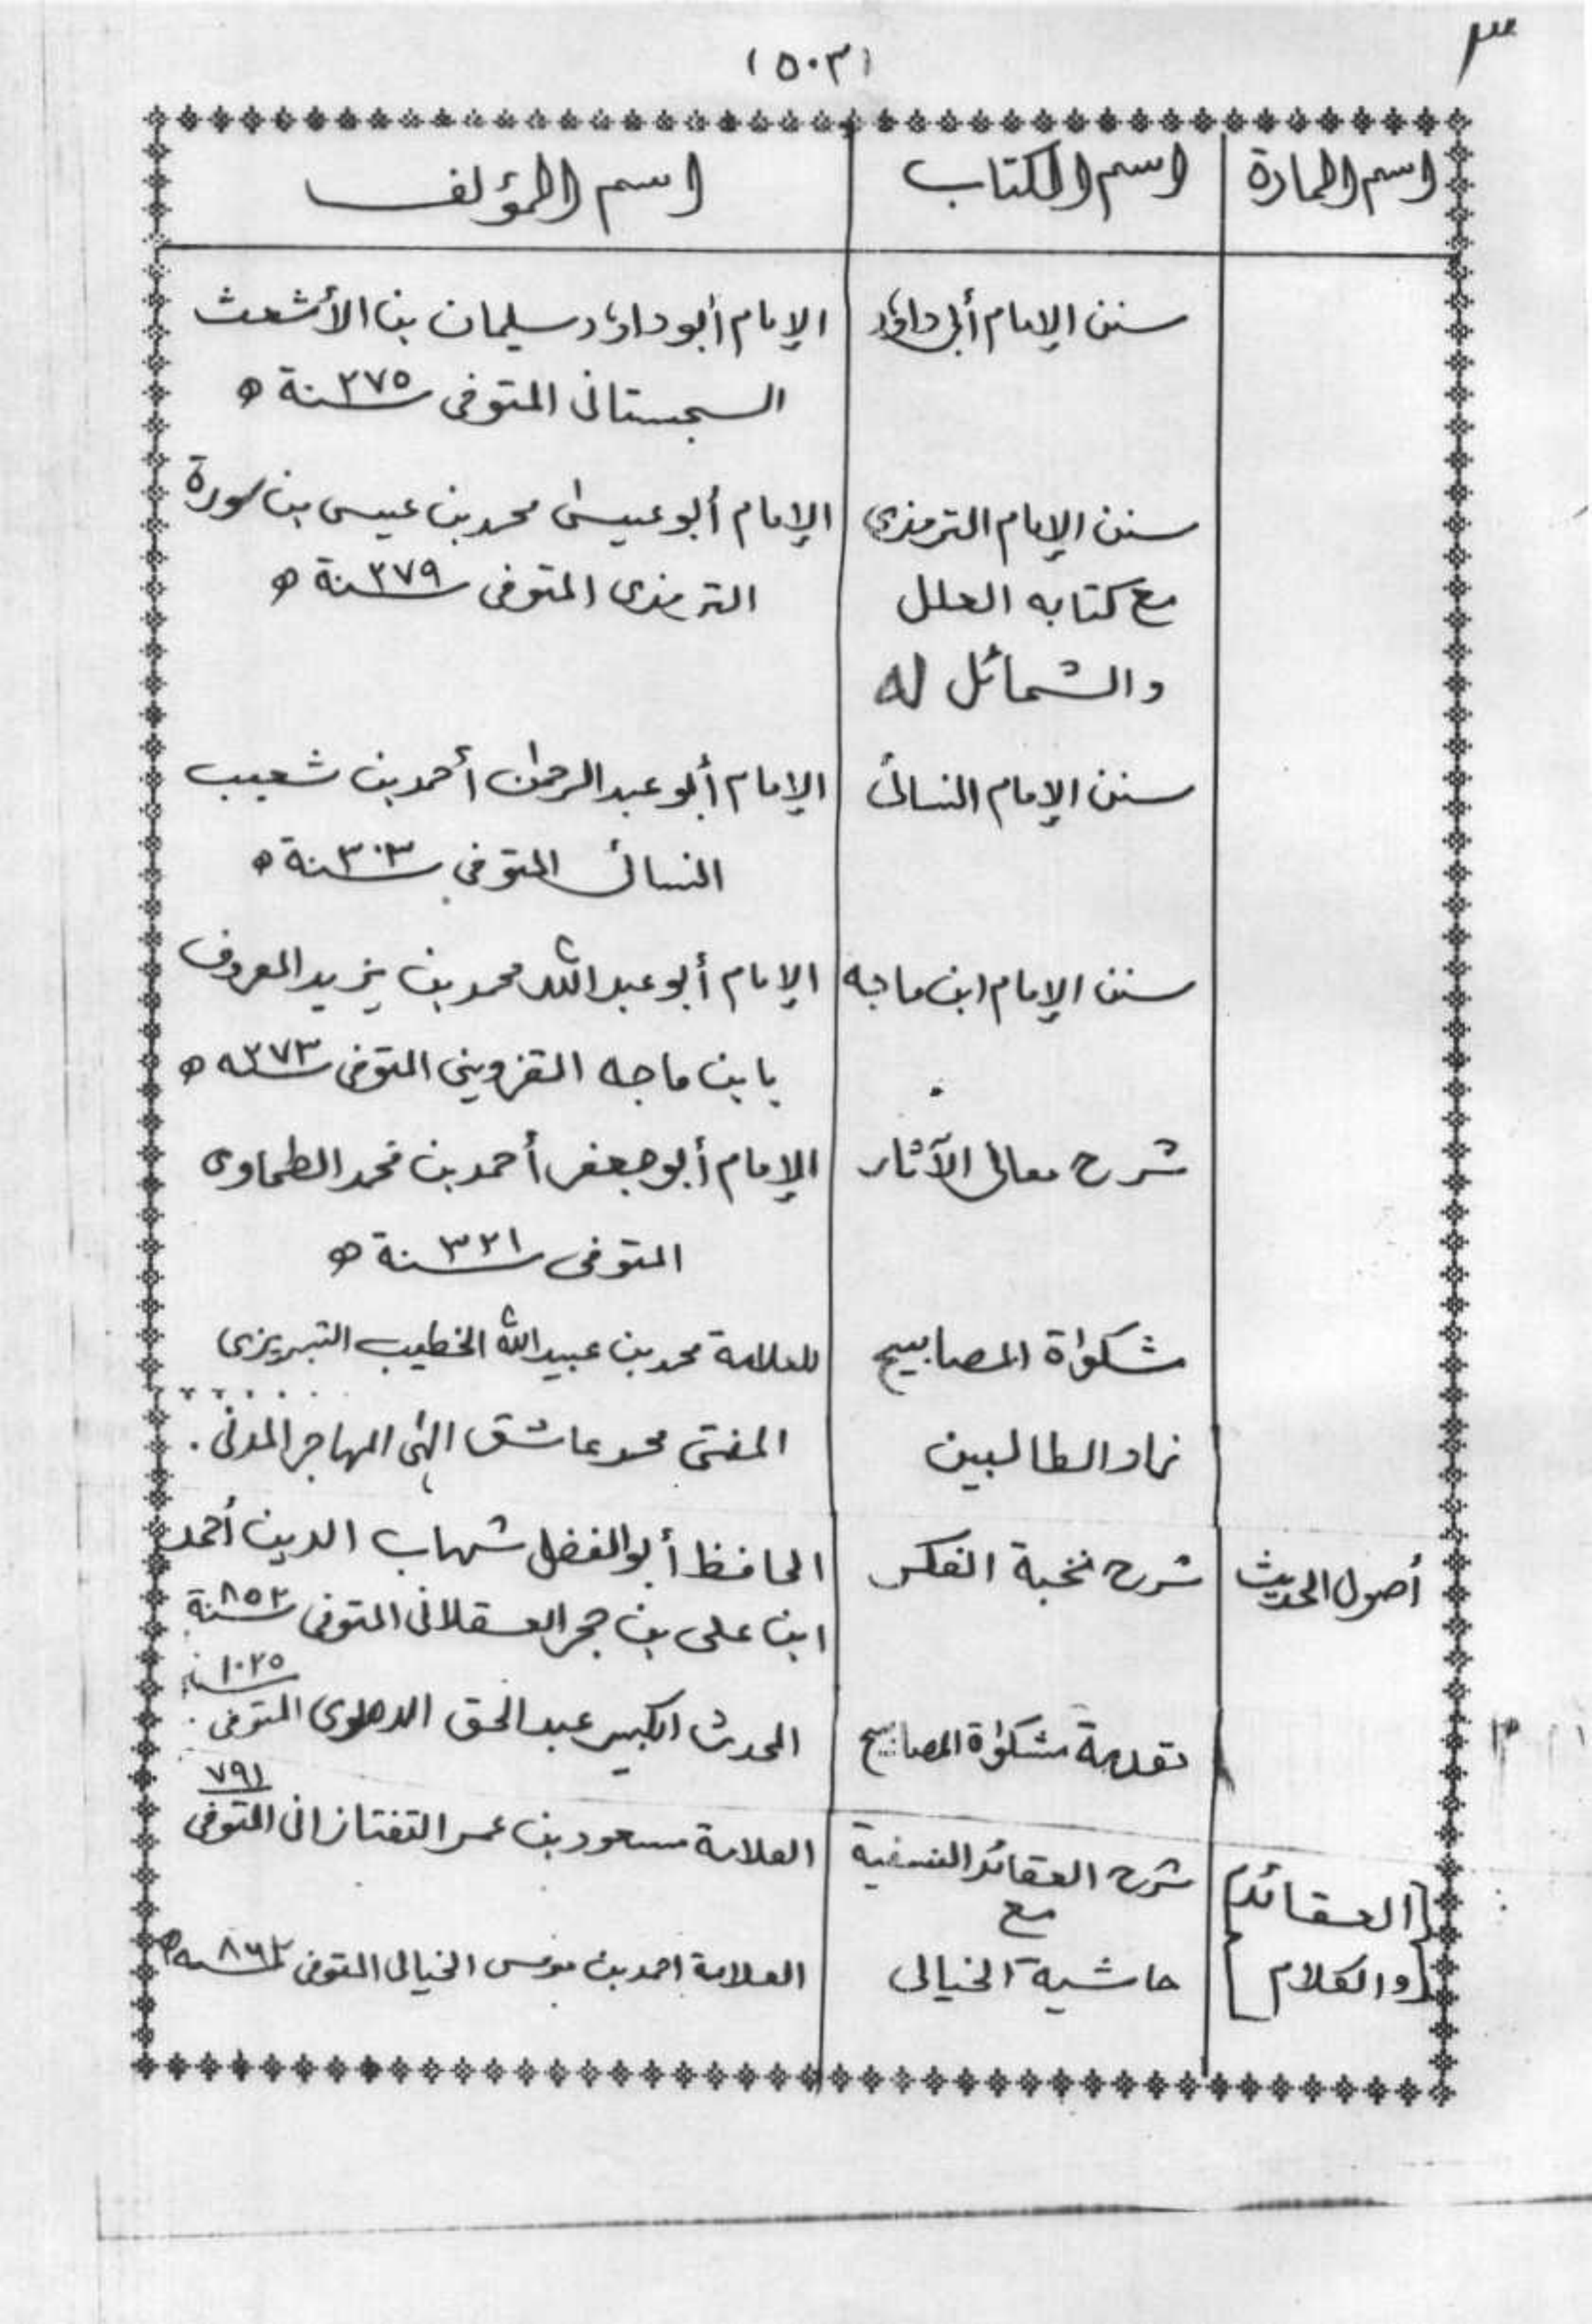 ٣
(٥٠٣)
اسم المادة اسم الكتاب اسم المؤلف
سنن الإمام أبي داؤد الإمام أبو داؤد سليمان بن الأشعث
السجستاني المتوفى سنة ٢٧٥ ه
سنن الإمام الترمذي الإمام أبو عيسىٰ محمد بن عيسى بن سورة
مع كتابه العلل الترمذى المتوفى سنة ٢٧٩ ه
والشمائل له
سنن الإمام النسائى الإمام أبو عبد الرحمٰن أحمد بن شعيب
النسائى المتوفى سنة ٣٠٣ ه
سنن الإمام ابن ماجه الإمام أبو عبد الله محمد بن يزيد المعروف
بابن ماجه القزويني المتوفى سنه ٢٧٣ ه
شرح معانى الآثار الإمام أبو جعفر أحمد بن محمد الطحاوى
المتوفى سنة ٣٢١ ه
مشكوٰة المصابيح للعلامة محمد بن عبيد الله الخطيب التبريزى
زاد الطالبين المفتى محمد عاشق إلٰهى المهاجر المدنى.
أصول الحديث شرح نخبة الفكر الحافظ أبو الفضل شهاب الدين أحمد
ابن على بن حجر العسقلانى المتوفى سنة ٨٥٢
تقدمة مشكوٰة المصابيح المحدث الكبير عبد الحق الدهلوى المتوفى ١٠٢٥
[العقائد] شرح العقائد النسفية العلامة مسعود بن عمر التفتازانى المتوفى ٧٩١
مع
[والكلام] حاشية الخيالى العلامة احمد بن موسى الخيالى المتوفى